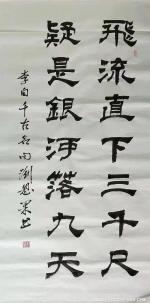 飛流直下三千尺
疑是銀河落九天
李白千古名句